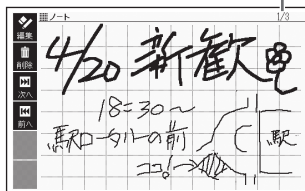 ノート 1/3
編集
削除
次へ
前へ
4/20 新歓
18=30〜
駅ロータリーの前
ココ!→
駅